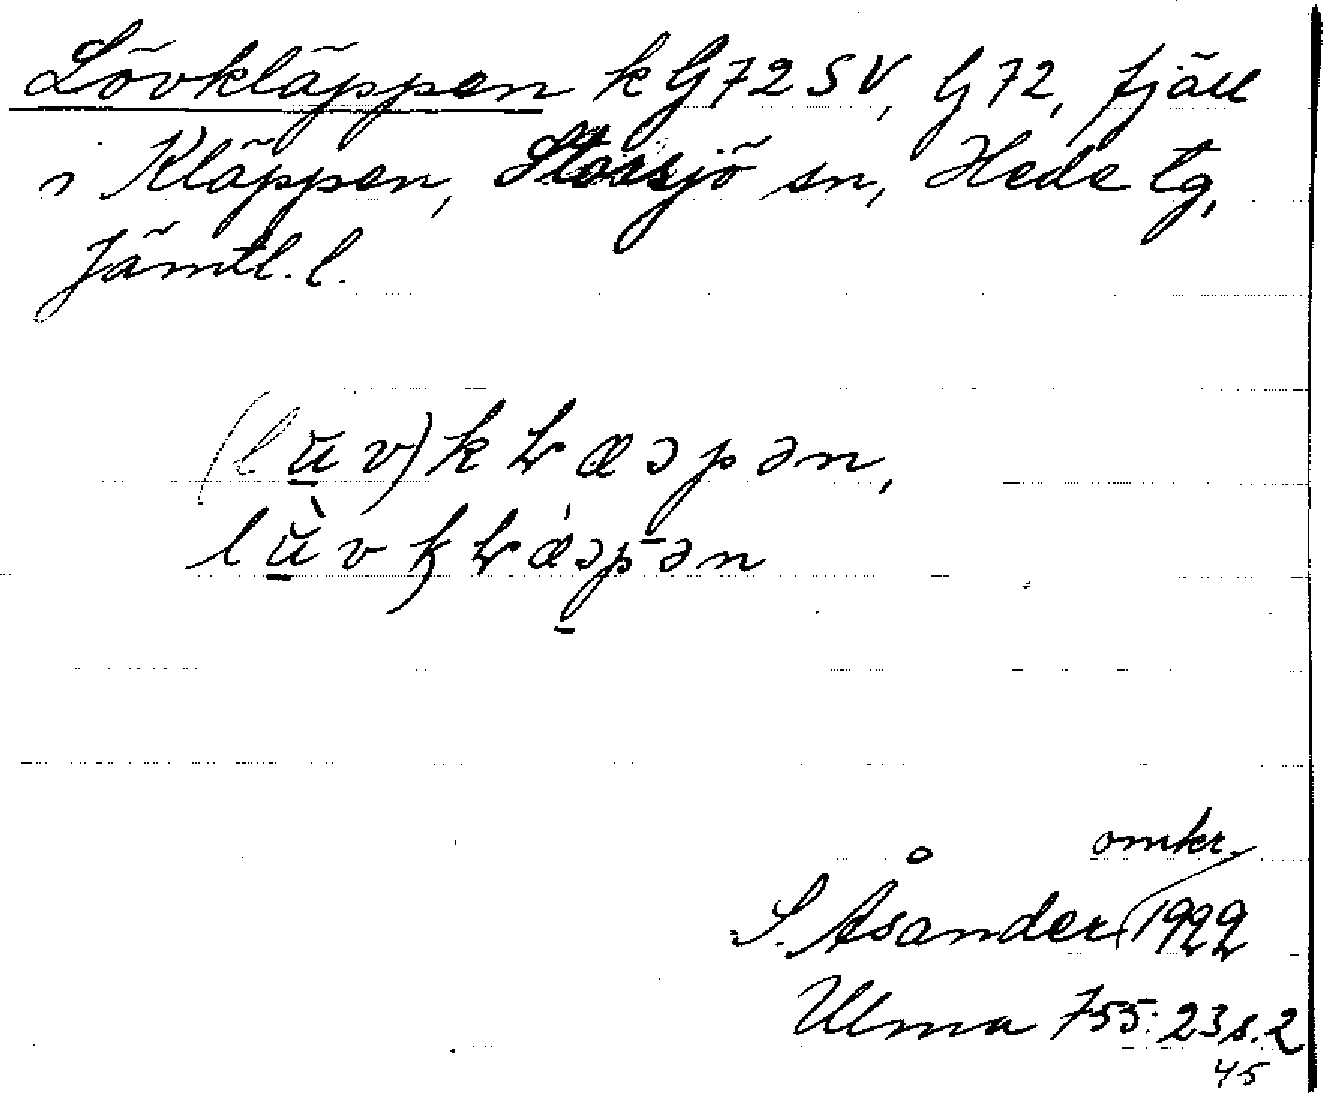 Lövkläppen k G72SV, G72, fjäll
i Kläppen, Storsjö sn, Hede tg,
Jämtl. l.
(lŭv)kꞎæəpən,
lŭ̀vkꞎæ̀əpən
omkr.
S. Åsander 1922
Ulma 755:23 s.2
45